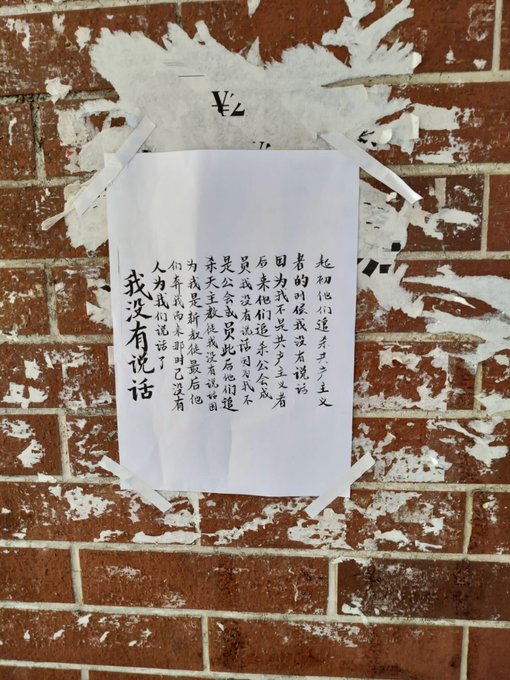 起初他们追杀共产主义
者的时候我没有说话
因为我不是共产主义者
后来他们追杀公会成
员我没有说话因为我不
是公会成员此后他们追
杀天主教徒我没有说话因
为我是新教徒最后他
们奔我而来那时已没有
人为我们说话了
我没有说话